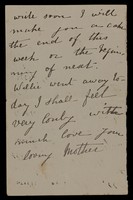 write soon I will
make you a cake
the end of this
week or the begin
ning of next.
Willie went away to
day I shall feel
very lonly with
much love your
loving Mother